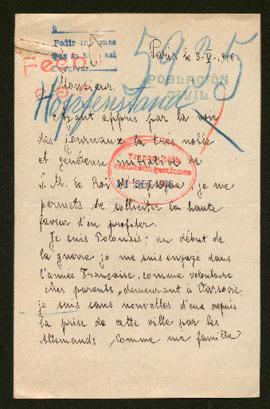 Paris le
Pedir informe
Monsieur.
5925
POBLACIÓN
CIVIL
Ayant appris par la voix
des journaux la très noble
et généreuse initiative de
S. M. le Roi d'Espagne je me
permets de solliciter la haute
faveur d'en profiter.
Je suis Polonais: au début de
la guerre je me suis engagé dans
l'armée Française, comme volontaire
mes parents, demeurant à Varsovie
je suis sans nouvelles d'eux depuis
la prise de cette ville par les
Allemands. Comme ma famille